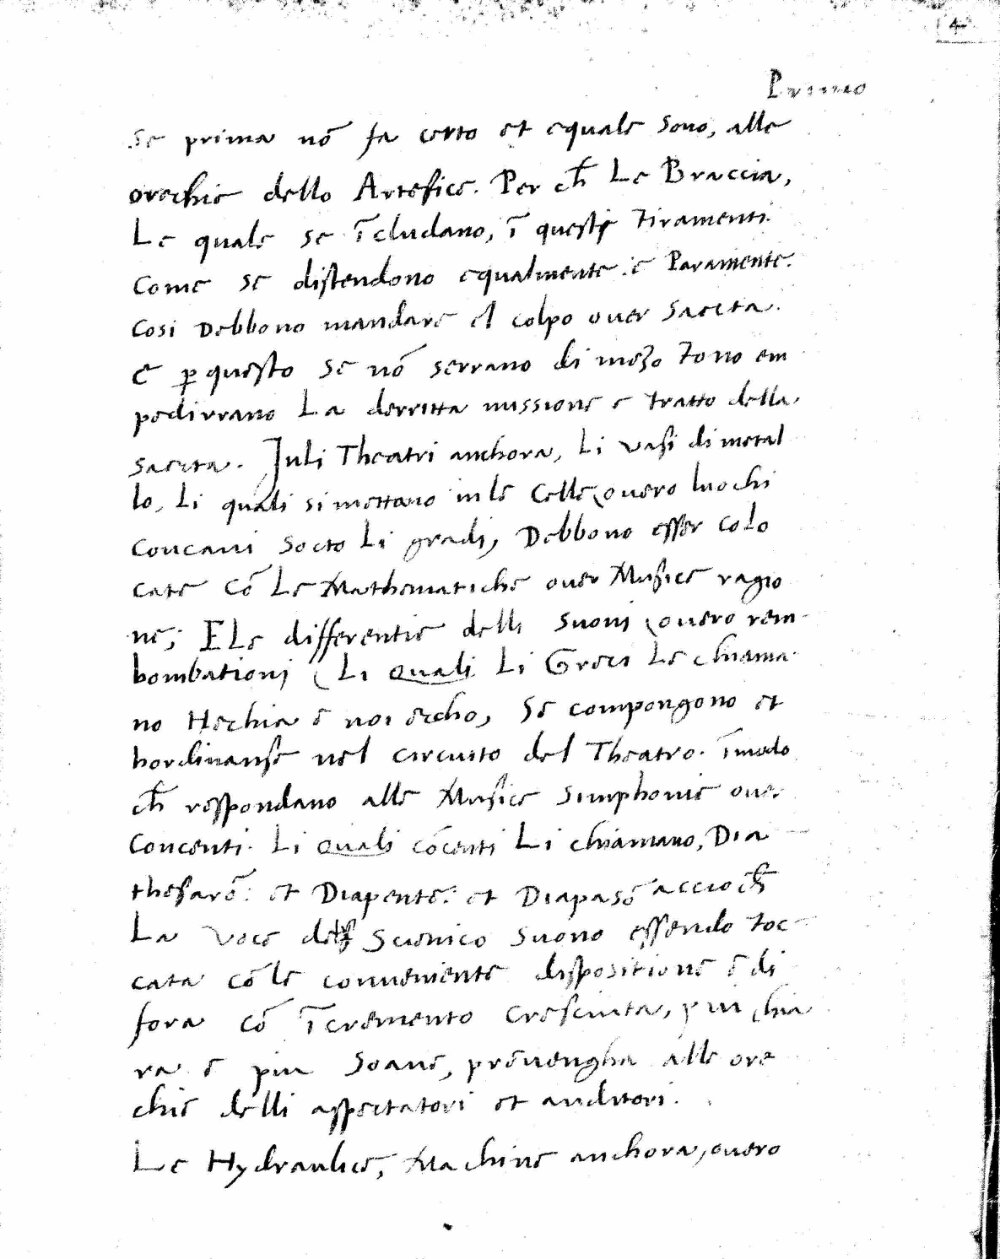 4
Primo
se prima nō fa certo et equale sono, alle
orechie dello Artefice. Per ch̄ Le Braccia,
Le quale se īcludano, ī questi tiramenti.
Come se distendono equalmente e Paramente.
Cosi Debbono mandare el colpo over saecta.
E p̄ questo se nō serrano di mezo tono em
pedirrano La derritta missione e tratto della
saecta. Juli Theatri anchora, Li vasi di metal
lo, Li quali si mettano in le Celle, overo luochi
concavi socto Li gradi, Debbono esser colo
cate cō Le Mathematiche over Musice ragio
ne; E Le differentie delli suoni overo rem-
bombationi (Li Quali Li Greci Le chiama
no Hechia e noi echo, Se compongono et
hordinanse nel circuito del Theatro. īmodo
ch̄ respondano alle Musice Simphonie over
Concenti. Li Quali cōcenti Li chiamano, Dia
thesarō: et Diapente: et Diapasō acciochē
La voce Scenico suono essendo toc-
cata cō le conveniente dispositione e di
fora cō īcremento cresciuta, piu chia
ra e piu soave, prēvengha alle ore
chie delli aspectatori et auditori.
Le Hydraulice, Machine anchora, overo